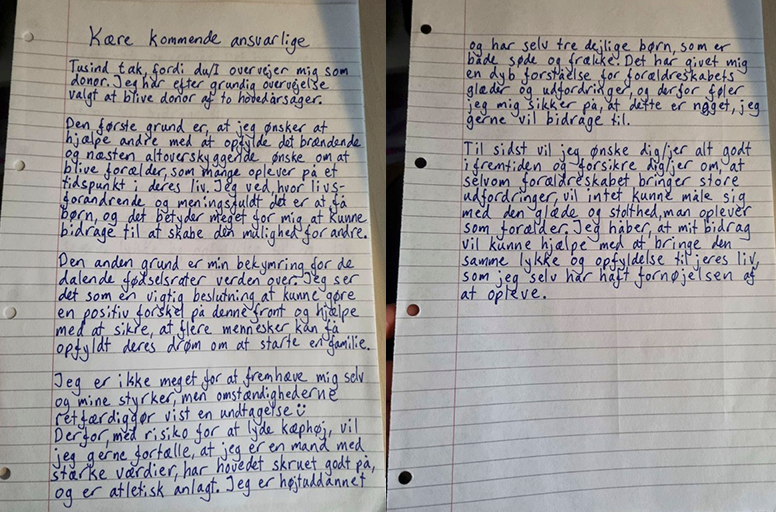 Kære kommende ansvarlige
Tusind tak, fordi du/I overvejer mig som
donor. Jeg har efter grundig overvejelse
valgt at blive donor af to hovedårsager.
Den første grund er, at jeg ønsker at
hjælpe andre med at opfylde det brændende
og næsten altoverskyggende ønske om at
blive forælder, som mange oplever på et
tidspunkt i deres liv. Jeg ved hvor livs-
forandrende og meningsfuldt det er at få
børn, og det betyder meget for mig at kunne
bidrage til at skabe den mulighed for andre.
Den anden grund er min bekymring for de
dalende fødselsrater verden over. Jeg ser
det som en vigtig beslutning at kunne gøre
en positiv forskel på denne front og hjælpe
med at sikre, at flere mennesker kan få
opfyldt deres drøm om at starte en familie.
Jeg er ikke meget for at fremhæve mig selv
og mine styrker, men omstændighederne
retfærdiggør vist en undtagelse ☺
Derfor, med risiko for at lyde kæphøj, vil
jeg gerne fortælle, at jeg er en mand med
stærke værdier, har hovedet skruet godt på,
og er atletisk anlagt. Jeg er højtuddannet
og har selv tre dejlige børn, som er
både søde og frække. Det har givet mig
en dyb forståelse for forældreskabets
glæder og udfordringer, og derfor føler
jeg mig sikker på, at dette er noget, jeg
gerne vil bidrage til.
Til sidst vil jeg ønske dig/jer alt godt
i fremtiden og forsikre dig/jer om, at
selvom forældreskabet bringer store
udfordringer, vil intet kunne måle sig
med den glæde og stolthed, man oplever
som forælder. Jeg håber, at mit bidrag
vil kunne hjælpe med at bringe den
samme lykke og opfyldelse til jeres liv,
som jeg selv har haft fornøjelsen af
at opleve.